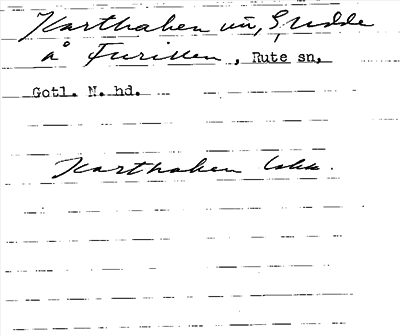 Karthaken vid, S, udde
å Furillen, Rute sn,
Gotl. N. hd.
Karthaken lokk.